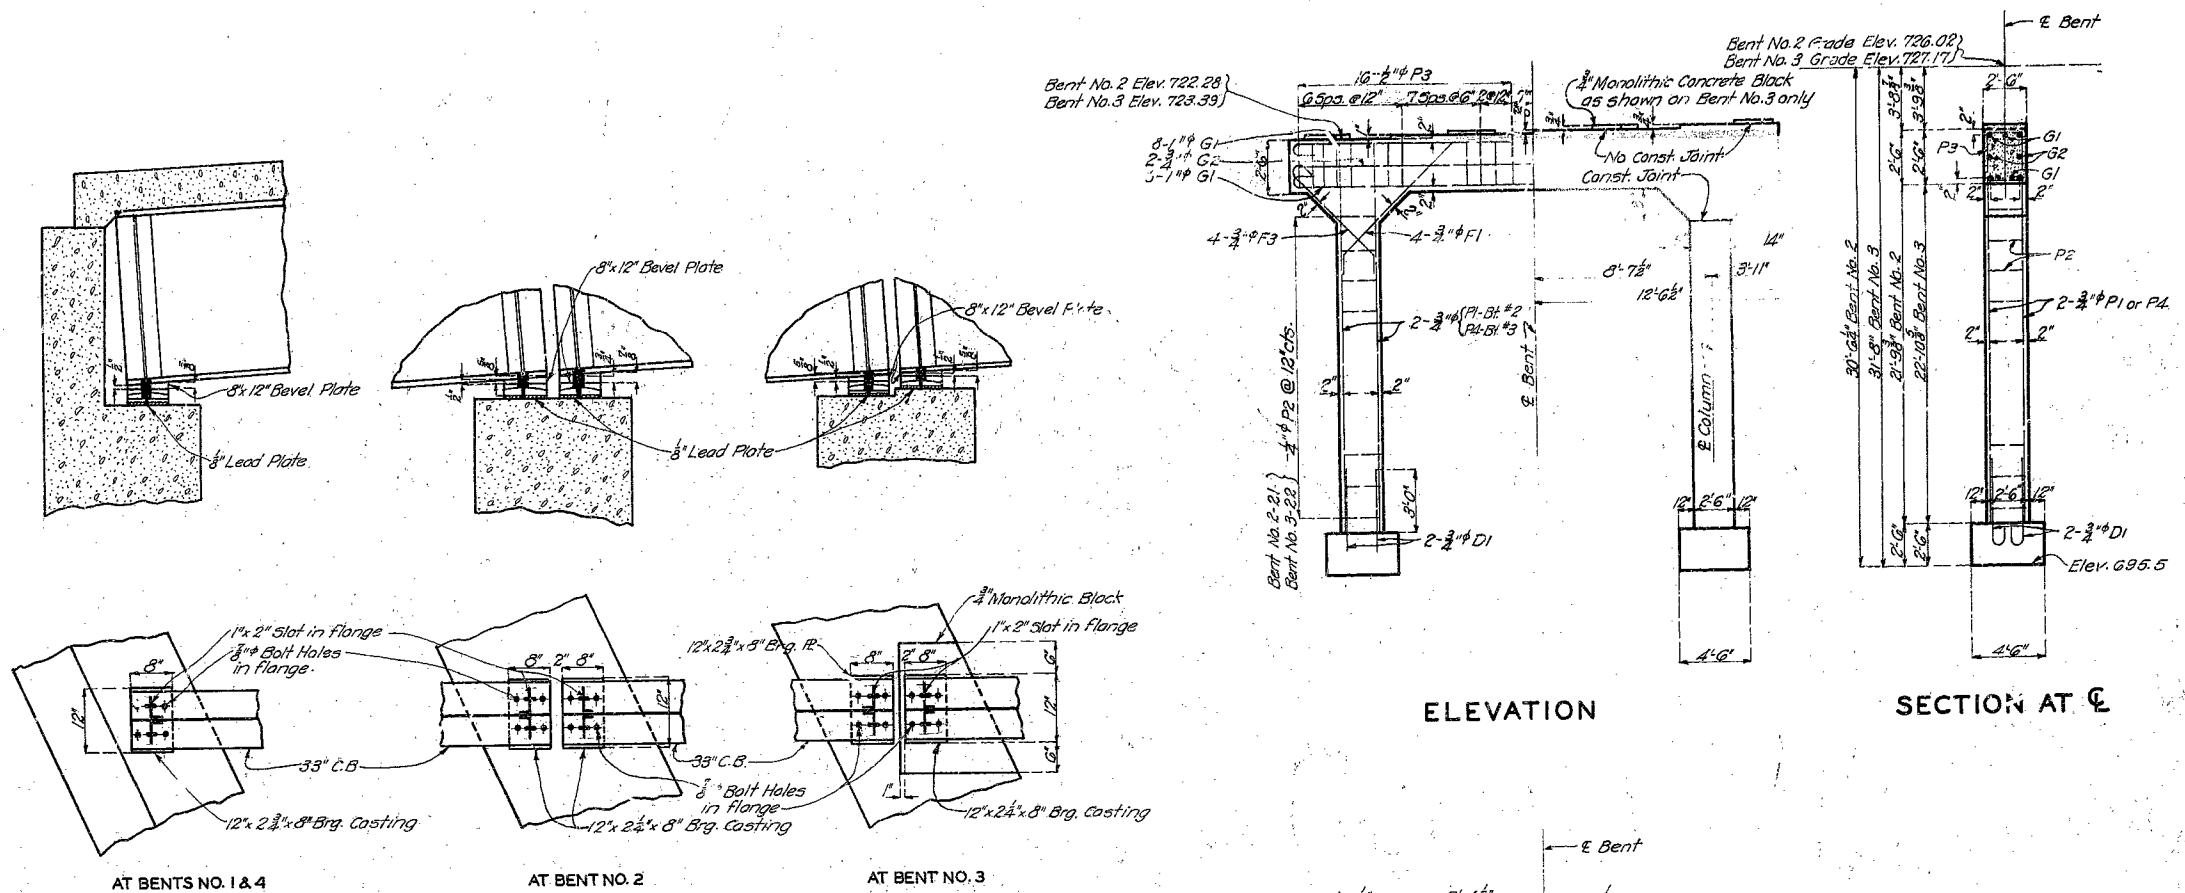 8"x12" Bevel Plate
1/8" Lead Plate
8"x12" Bevel Plate
1/8" Lead Plate
8"x12" Bevel
1"x2" Slot in flange
7/8"φ Bolt Holes
in flange.
8"
12"
12"x2 3/4"x8" Brg. Casting
AT BENTS NO. 1 & 4
33" C.B.
8" 2" 8"
12"
12"x2 1/4"x8" Brg. Casting
AT BENT NO. 2
3/4" Monolithic Block
1"x2" Slot in flange
12"x2 3/4"x8" Brg. PL
8" 2" 8"
6"
12"
6"
33" C.B.
Bolt Holes
in flange
1"
12"x2 1/4"x8" Brg. Casting
AT BENT NO. 3
Bent No. 2 Elev. 722.28
Bent No. 3 Elev. 723.39
16-1/2"φ P3
6 Sps. @ 12" 7 Sps. @ 6" 2 @ 12"
3/4" Monolithic Concrete Block
as shown on Bent No. 3 only
8-1"φ G1
2-3/4"φ G2
2'-6"
No Const. Joint
Const. Joint
2"
4-3/4"φ F3
4-3/4"φ F1
2-3/4"φ P1-Bt. #2
P4-Bt. #3
1/4"φ P2 @ 12" cts.
Bent No. 2-21
Bent No. 3-22
2" 2"
3'-0"
2-3/4"φ D1
℄ Bent
8'-7 1/2"
12'-6 1/2"
14"
3'-11"
℄ Column
12" 2'-6" 12"
4'-6"
ELEVATION
℄ Bent
Bent No. 2 Grade Elev. 726.02
Bent No. 3 Grade Elev. 727.17
2'-6"
G1
G2
G1
P3
2" 2"
P2
2-3/4"φ P1 or P4
2" 2"
30'-6 1/4" Bent No. 2
31'-8" Bent No. 3
21'-9 3/8" Bent No. 2
22'-10 5/8" Bent No. 3
2'-6"
2'-6"
12" 2'-6" 12"
2-3/4"φ D1
Elev. 695.5
4'-6"
SECTION AT ℄
℄ Bent